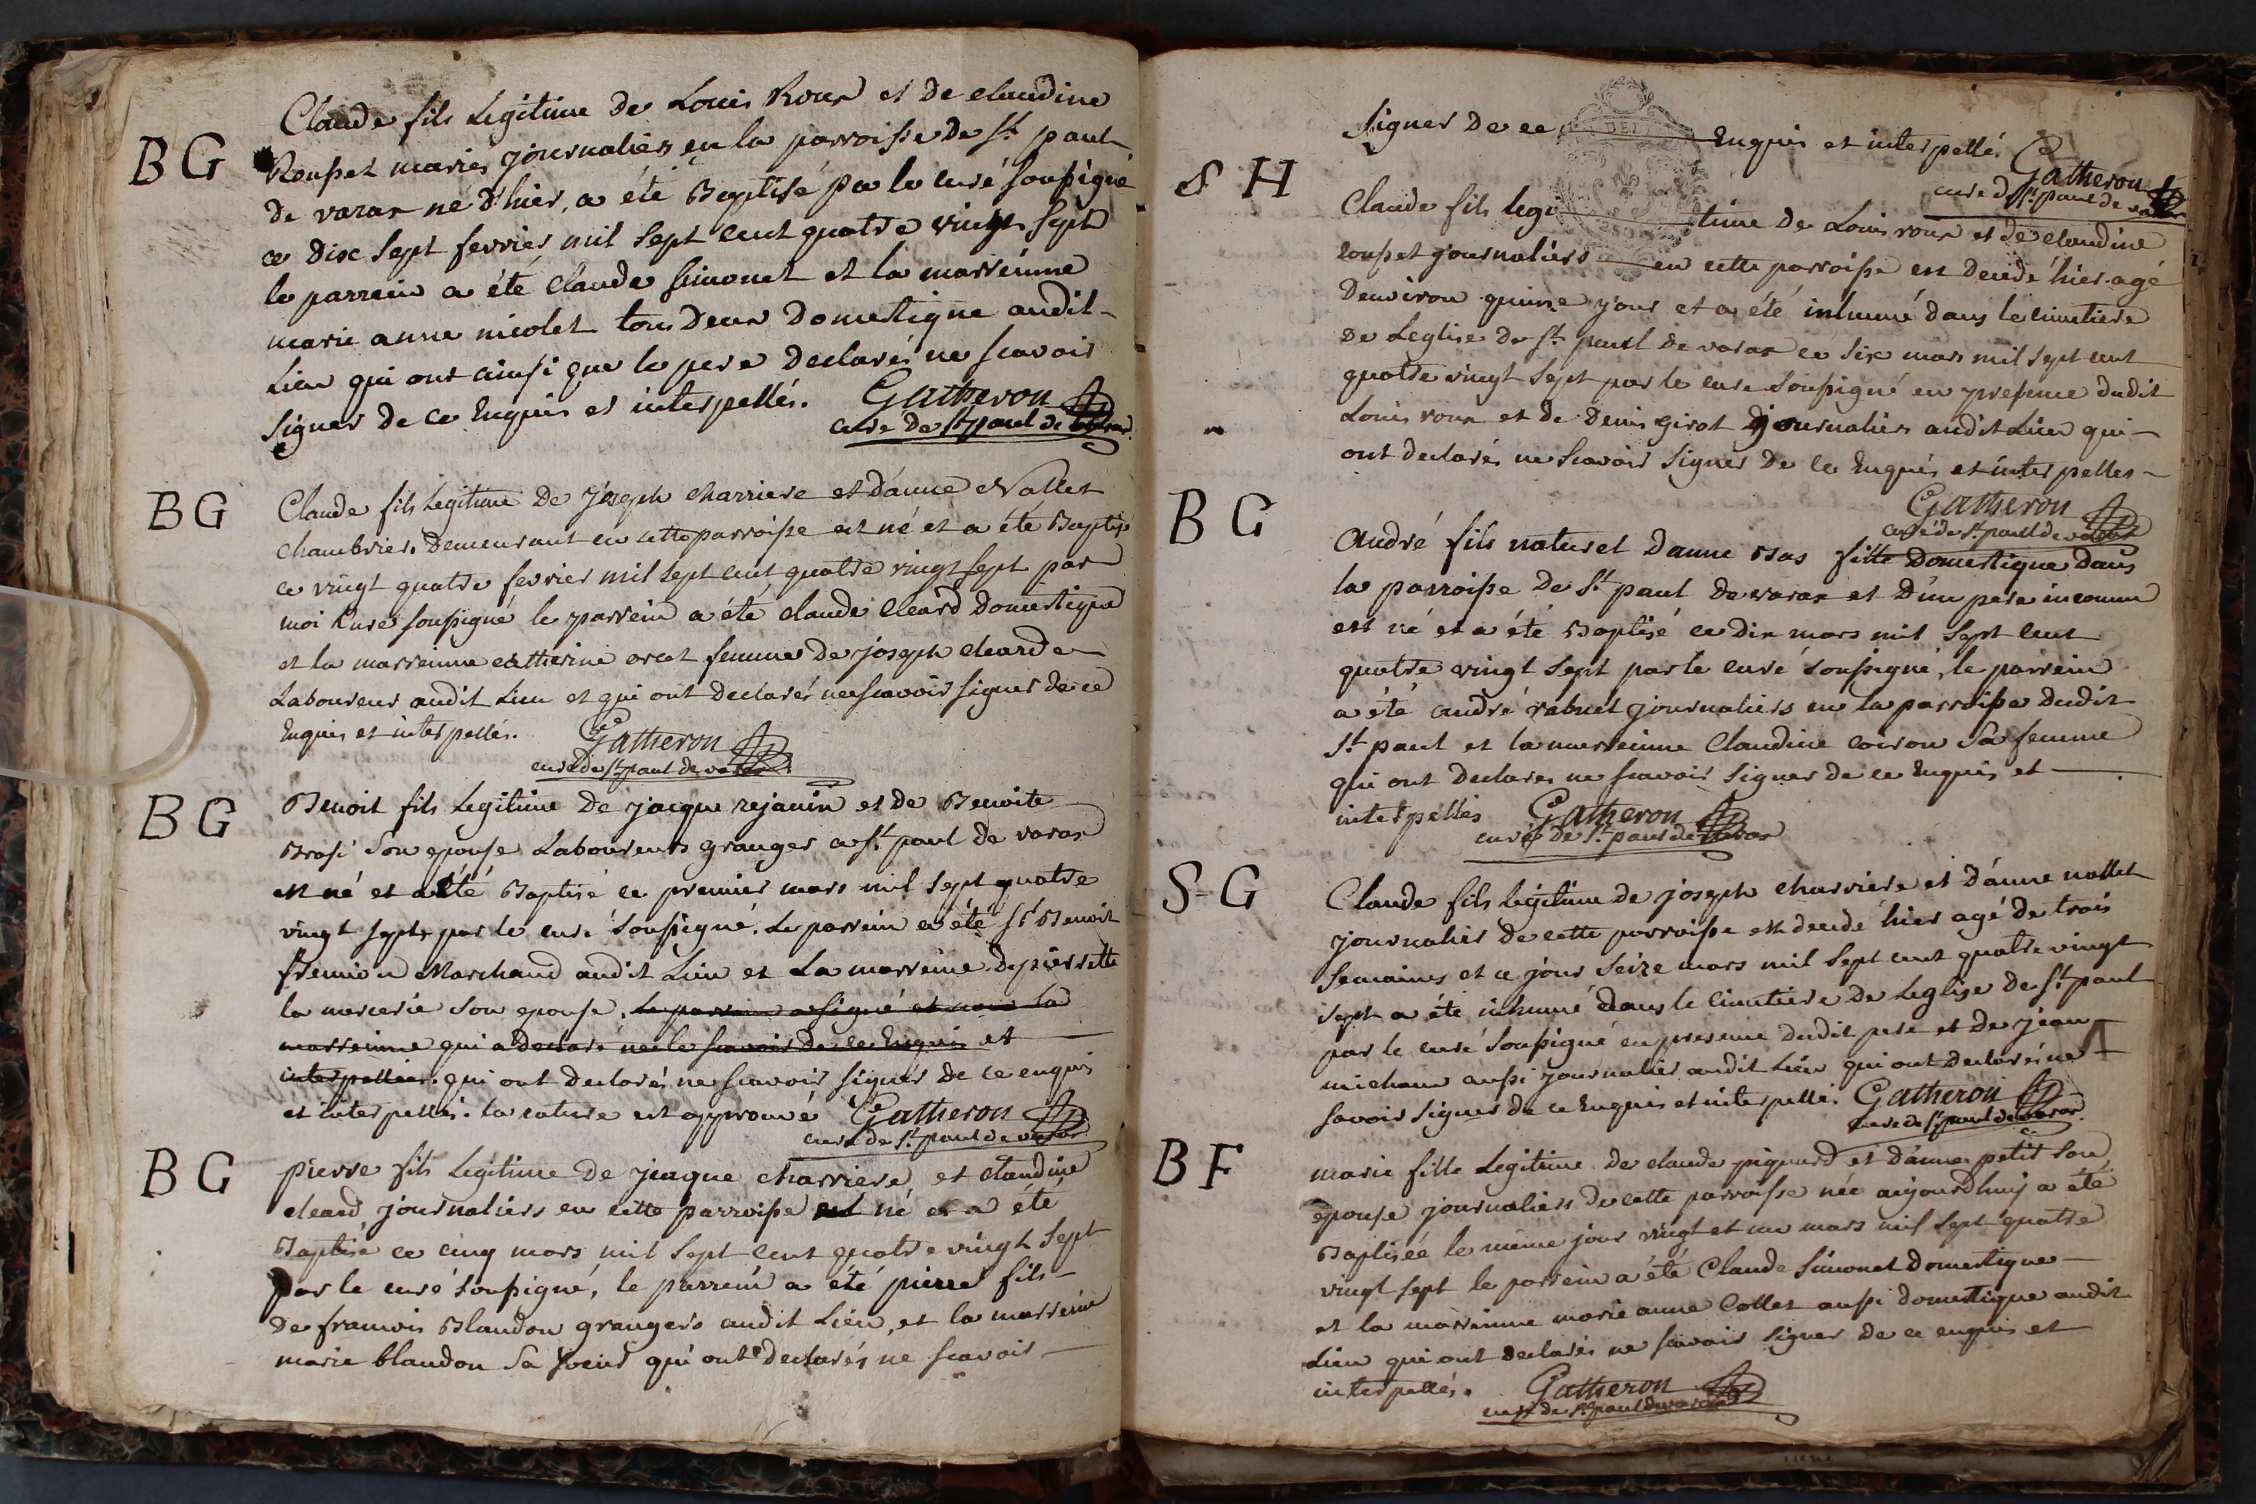 BG
Claude fils Legitime de Louis Roux et de claudine
Rousset mariés journaliers en la parroisse de St paul
de varax né d'hier, a été Baptisé par le curé soussigné
ce dix sept fevrier mil sept cent quatre vingt sept
le parrein a été Claude Simonet et la marreinne
marie anne nicolet tous Deux Domestique audit
Lieu qui ont ainsi que le pere declarés ne scavoir
signer de ce Enquis et interpellés. Gatheron
curé de St paul de varax
BG
Claude fils Legitime de joseph charriere et d'anne Nallet
chambrier demeurant en cette parroisse est né et a été Baptisé
ce vingt quatre fevrier mil sept cent quatre vingt sept par
moi Curé soussigné le parrein a été claude cleard domestique
et la marreinne catherine orcet femme de joseph cleard
Laboureur audit Lieu et qui ont declarés ne scavoir signer de ce
Enquis et interpellés. Gatheron
curé de St paul de varax
BG
Benoit fils Legitime de jacque rejanin et de Benoite
Brosi son epouse Laboureurs granger a St paul de varax
est né et a été Baptisé ce premier mars mil sept quatre
vingt sept, par le curé soussigné. Le parrein a été Sr Benoit
fremion Marchand audit Lieu et La marreine de pierrette
la mercerie son epouse. le parrein a signé et non la
marreinne qui a declaré ne le scavoir de ce Enquis et
interpellée. qui ont declarés ne scavoir signer de ce enquis
et interpellés. la rature est approuvé Gatheron
curé de St paul de varax
BG
pierre fils Legitime de jacque charriere et claudine
cleard journaliers en cette parroisse est né et a été
Baptisé ce cinq mars mil sept cent quatre vingt sept
par le curé soussigné, le parrein a été pierre fils
de francois Blandon grangers audit Lieu, et la marreine
marie blandon sa soeur qui ont declarés ne scavoir
signer de ce Enquis et interpellés Gatheron
curé de St paul de varax
S H
Claude fils legitime de Louis roux et de claudine
rousset journaliers en cette parroisse est decedé hier agé
d'environ quinze jours et a été inhumé dans le cimetiere
de Leglise de St paul de varax ce six mars mil sept cent
quatre vingt sept par le curé soussigné en presence dudit
Louis roux et de Denis girot journaliers audit Lieu qui
ont declarés ne scavoir signer de ce Enquis et interpelles
Gatheron
curé de St paul de varax
BG
André fils naturel d'anne Bas fille domestique dans
la parroisse de St paul de varax et d'un pere inconnu
est né et a été Baptisé ce dix mars mil sept cent
quatre vingt sept par le curé soussigné, le parrein
a été andré rabuel journaliers en la parroisse dudit
St paul et la marreinne Claudine coiron sa femme
qui ont declares ne scavoir signer de ce Enquis et
interpellés Gatheron
curé de St paul de varax
S-G
Claude fils legitime de joseph charriere et d'anne nallet
journalier de cette parroisse est decedé hier agé de trois
semaines et ce jour seize mars mil sept cent quatre vingt
sept a été inhumé dans le cimetiere de Leglise de St paul
par le curé soussigné en presence dudit pere et de jean
michaux aussi journalier audit Lieu qui ont declarés ne
savoir signer de ce Enquis et interpellé. Gatheron
curé de St paul de varax
BF
marie fille Legitime de claude piquard et d'anne petit son
epouse journaliers de cette parroisse née aujourdhuy a été
Baptisée le même jour vingt et un mars mil sept quatre
vingt sept le parrein a été Claude Simonet domestique
et la marreinne marie anne Collet aussi domestique audit
Lieu qui ont declarés ne scavoir signer de ce enquis et
interpellés. Gatheron
curé de St paul de varax